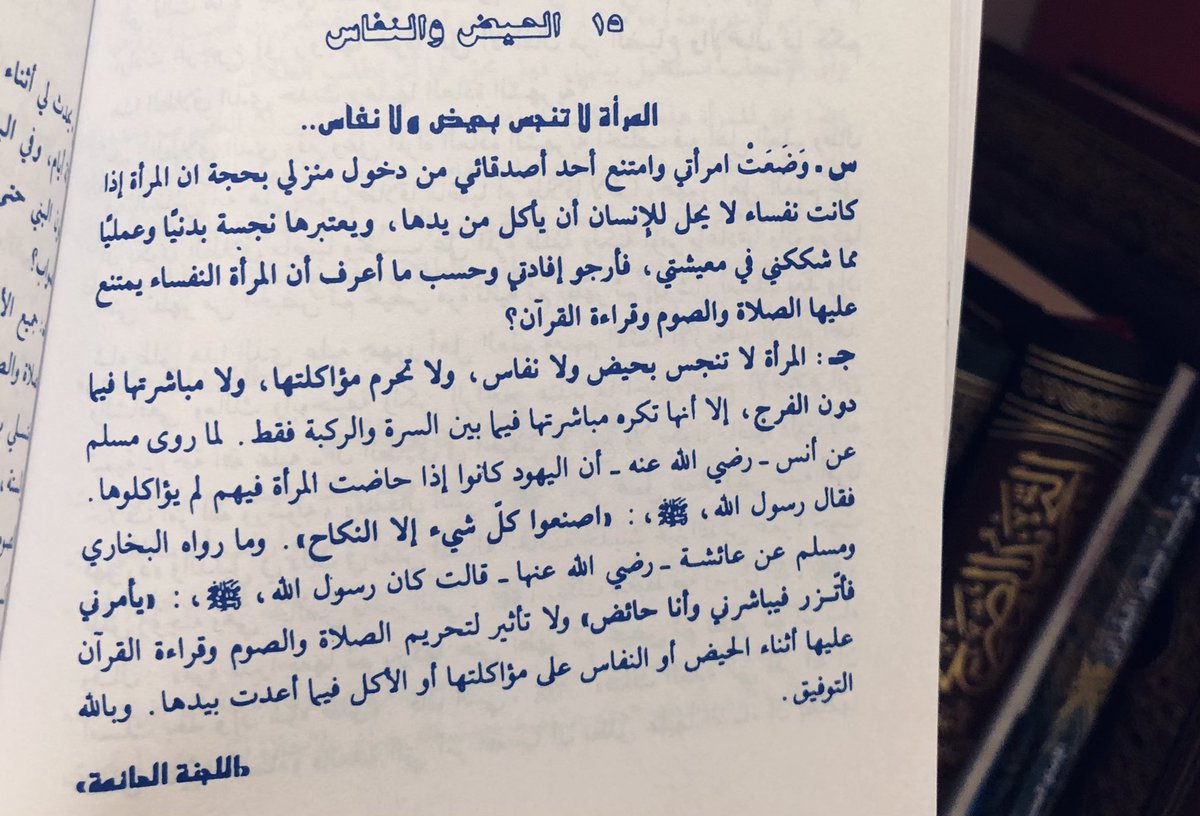 ١٥ الحيض والنفاس
المرأة لا تنجس بحيض ولا نفاس..
س . وَضَعَتْ امرأتي وامتنع أحد أصدقائي من دخول منزلي بحجة ان المرأة إذا
كانت نفساء لا يحل للإنسان أن يأكل من يدها، ويعتبرها نجسة بدنيًا وعمليًا
مما شككني في معيشتي، فأرجو إفادتي وحسب ما أعرف أن المرأة النفساء يمتنع
عليها الصلاة والصوم وقراءة القرآن؟
جـ : المرأة لا تنجس بحيض ولا نفاس، ولا تحرم مؤاكلتها، ولا مباشرتها فيما
دون الفرج، إلا أنها تكره مباشرتها فيما بين السرة والركبة فقط. لما روى مسلم
عن أنس ـ رضي الله عنه ـ أن اليهود كانوا إذا حاضت المرأة فيهم لم يؤاكلوها.
فقال رسول الله، ﷺ، : «اصنعوا كلّ شيء إلا النكاح». وما رواه البخاري
ومسلم عن عائشة ـ رضي الله عنها ـ قالت كان رسول الله، ﷺ، : «يأمرني
فأتّزر فيباشرني وأنا حائض» ولا تأثير لتحريم الصلاة والصوم وقراءة القرآن
عليها أثناء الحيض أو النفاس على مؤاكلتها أو الأكل فيما أعدت بيدها. وبالله
التوفيق.
«اللجنة الدائمة»